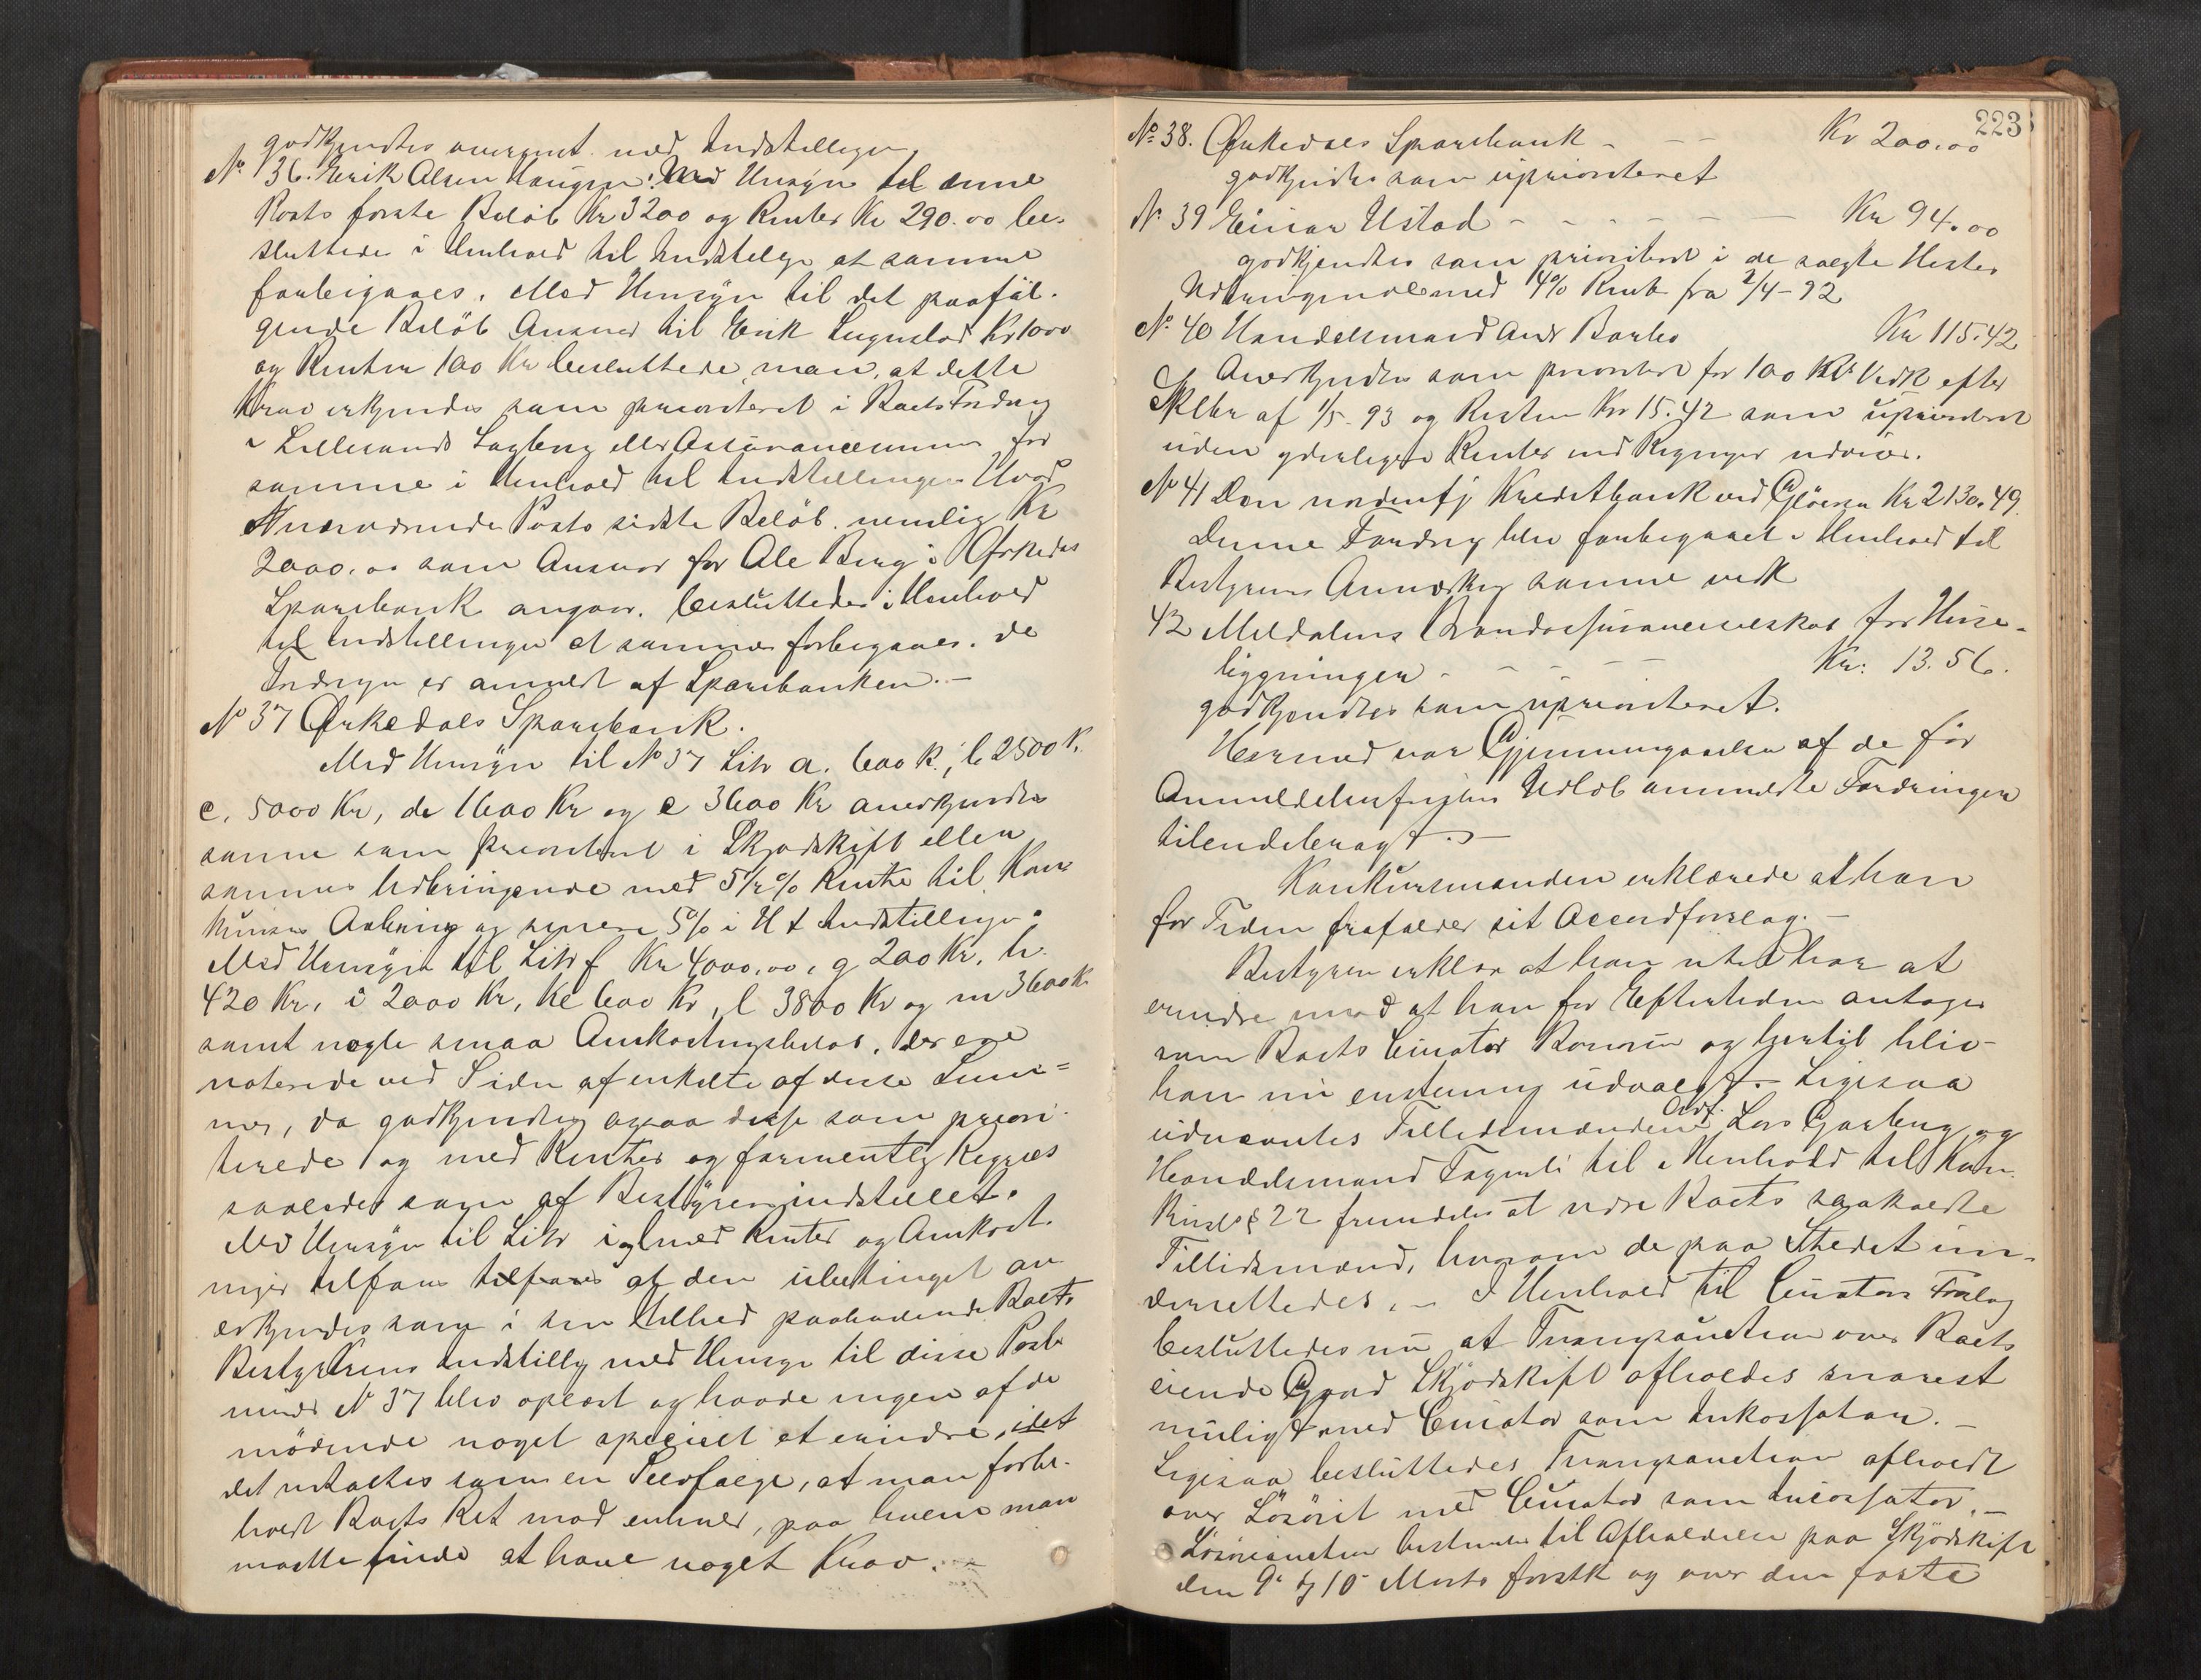 godkjendtes overensst. med Indstillingen.
No 36. Erik Olsen Haugen: Med Hensyn til denne
Posts første Beløb Kr 3200 og Renter Kr 290.00 be-
sluttedes i Henhold til Indstillge at samme
forbigaaes. Med Hensyn til det paaføl-
gende Beløb Ansvar til Erik Kr 1000
og Renten 100 Kr besluttede man, at dette
Krav erkjendes som prioriteret i Boets Fordring
i Lillesands eller Assurancesummen for
samme i Henhold til Indstillingen. Hvad
Nærværende Posts sidste Beløb nemlig Kr
2000.00 som Ansvar for Ole Berg i Ørkedals
Sparebank angaar, besluttedes i Henhold
til Indstillingen at samme forbigaaes, da
Fordrgen er anmeldt af Sparebanken.-
No 37 Ørkedals Sparebank.
Med Hensyn til No 37 Litr a. 600 k., b 2500 K.
c. 5000 Kr, d. 1600 Kr og e 3600 Kr anerkjendtes
samme som prioriteret i Skjødskift eller
sammes Udbringende med 5½% Rente til Kon-
kursens Aabning og senere 5% i H t Indstillingen.
Med Hensyn til Litr f Kr 4000.00, g 200 Kr, h.
420 Kr, i 2000 Kr, k 600 Kr, l 3800 Kr og m 3600 k
samt nogle smaa Omkostningsbeløb, der ere
noterede ved Siden af enkelte af disse Sum=
mer, da godkjendtes ogsaa disse som priori-
terede og med Renter og formentlig Regres
saaledes som af Bestyreren indstillet.
Med Hensyn til Litr i og l med Renter og Omkost-
ninger tilføies at den ubetinget an-
erkjendes som i sin Helhed paahvilende Boets
Bestyrerens Indstilling med Hensyn til disse Poster
under N 37 blev oplæst og havde ingen af de
mødende noget specielt at erindre, idet
det udtaltes som en Selvfølge, at man forbe-
holdt Boets Ret mod enhver, paa hvem man
maatte finde at have noget Krav.-
223
No 38. Ørkedals Sparebank - - - Kr 200.00
godkjendtes som uprioriteret
N 39 Einar Ustad - - - - - Kr 94.00
godkjendtes som prioriteret i de solgte Hestes
Udbringende med 4% Rente fra 2/4-92
No 40 Handelsmand Andr Borbo Kr 115.42
Anerkjendtes som prioriteret for 100 Kr Vedk efter
Skbr af 1/5-93 og Resten Kr 15.42 som uprioriteret
uden yderligere Renter end Regnger udviser.
No 41 Den nordenfj Kreditbank ved Gløersen Kr 2130.49.
Denne Fordrg blev forbigaaet i Henhold til
Bestyrers Anmærkng samme vedk
42 Meldalens Brandassuranceselskab for Huse-
liggningen - - - - Kr: 13.56.
godkjendtes som uprioriteret.
Hermed var Gjennemgaaelsen af de før
Anmeldelsesfristens Udløb anmeldte Fordringer
tilendebragt.-
Konkursmanden erklærede at han
for Tiden frafalder sit Accordforslag.-
Bestyren erklær at han intet har at
erindre mod at han for Eftertiden antages
som Boets Curator Bonorum og hertil blev
han nu enstemmig udvalgt.- Ligesaa
udnævntes Tillidsmændene Ordf. Lars Garberg og
Handelsmand Fagerli til i Henhold til Kon-
kursl § 22 fremdeles at være Boets saakaldte
Tillidsmænd, hvorom de paa Stedet un-
derrettedes.- I Henhold til Curators Forslag
besluttedes nu at Tvangsauction over Boets
eiende Gaard Skjødskift afholdes snarest
muligt med Curator som Inkassator.-
Ligesaa besluttedes Tvangsauction afholdt
over Løsøret med Curator som Incassator.-
Løsøreauction bestemtes til Afholdelse paa Skjødskift
den 9de og 10de Marts førstk og over den faste